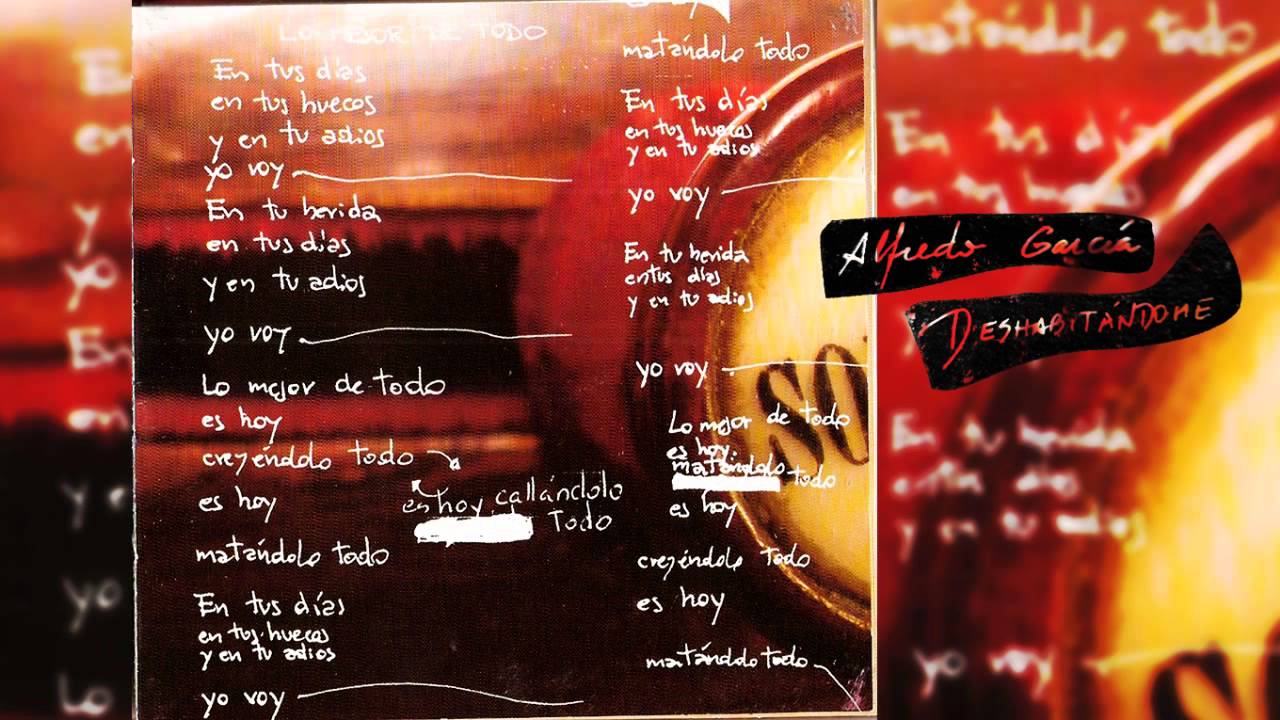 LO MEJOR DE TODO
En tus días
en tus huecos
y en tu adios
yo voy
En tu herida
en tus días
y en tu adios
yo voy
Lo mejor de todo
es hoy
creyéndolo todo
es hoy callándolo
Todo
es hoy
matándolo todo
En tus días
en tus huecos
y en tu adios
yo voy
matándolo todo
En tus días
en tus huecos
y en tu adios
yo voy
En tu herida
entus días
y en tu adios
yo voy
Lo mejor de todo
es hoy.
matándolo todo
es hoy
creyéndolo todo
es hoy
matándolo todo
SO
Alfredo García
DESHABITÁNDOME